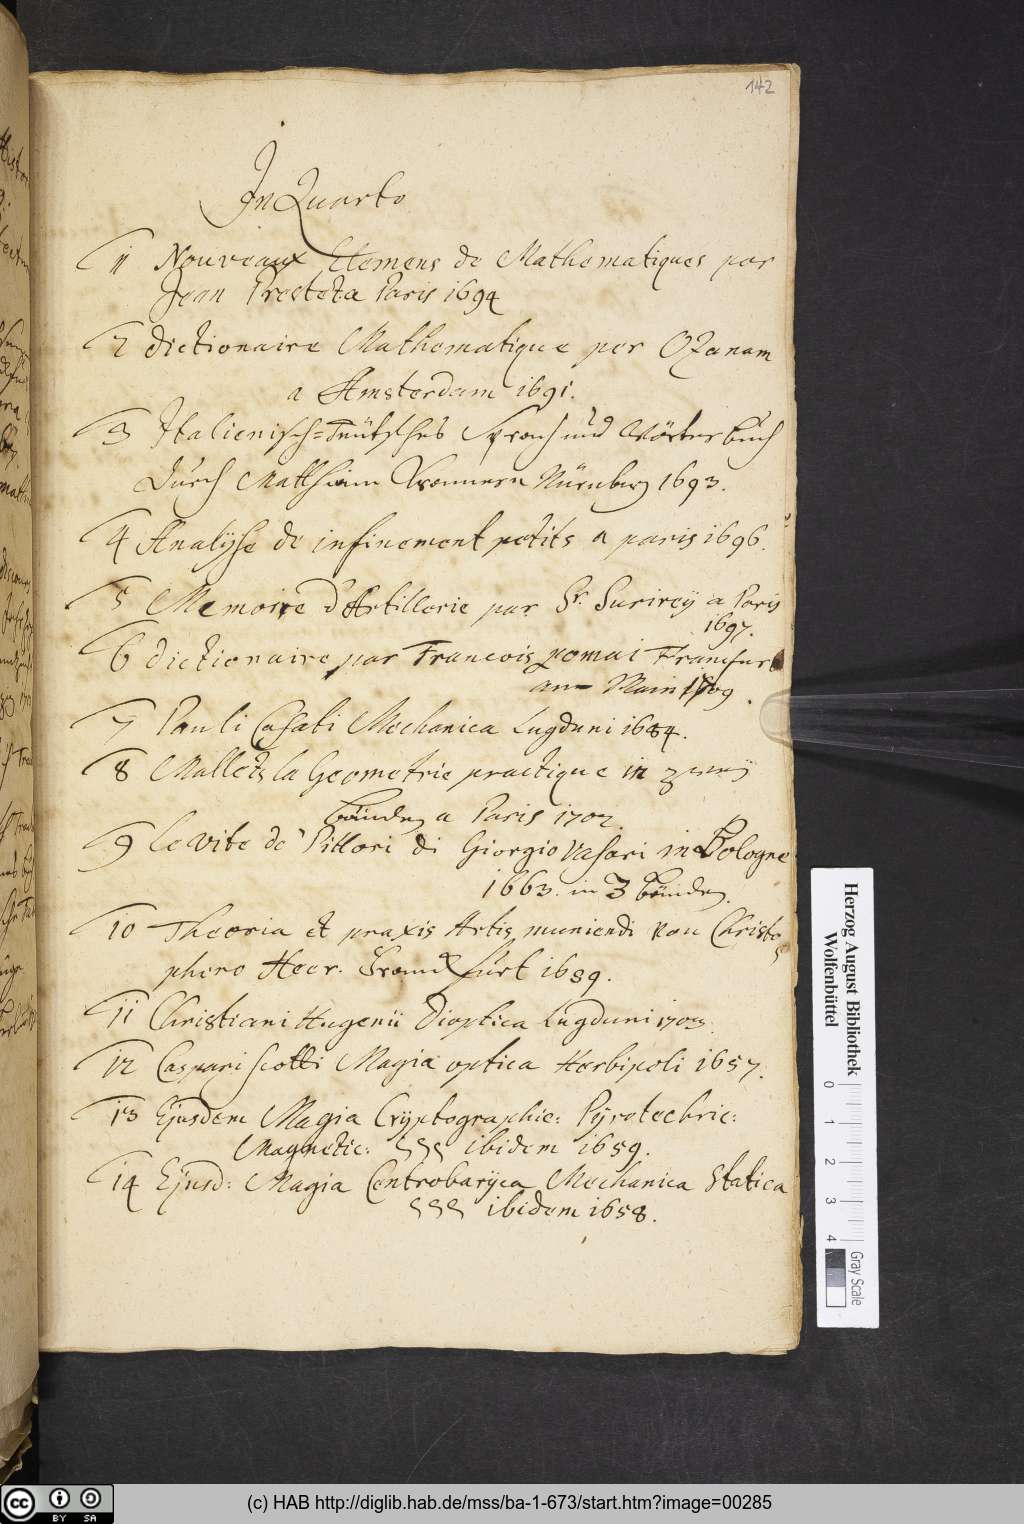 142
In Quarto
1 Nouveaux Elemens de Mathematiques par
Jean Presteta Paris 1694
2 dictionaire Mathematique per Ozanam
a Amsterdam 1691.
3 Italienisch=Teütsches Sprach und Wörterbuch
durch Matthiam Kramern Nürnberg 1693.
4 Analyse de infinement petits a paris 1696.
5 Memoire d'Artillerie par Sr. Surireÿ a Paris
1697.
6 dictionaire par Francois pomai Francfurt
am Main 1709.
7 Pauli Casati Mechanica Lugduni 1684.
8 Mallets la Geometrie practique in zweÿ
bänden a Paris 1702.
9 Le vite de Pittori di Giorgio Vasari in Bologne
1663. in 3 bänden.
10 Theoria et praxis Artis muniendi von Christo
phero Heer. Franckfurt 1689.
11 Christiani Hugenii Dioptica Lugduni 1703.
12 Caspari Scotti Magia optica Herbipoli 1657.
13 Ejusdem Magia Cryptographic: Pÿrotechnic:
Magnetic: ibidem 1659.
14 Ejusd: Magia Centrobarÿca Mechanica Statica
ibidem 1658.
Herzog August Bibliothek
Wolfenbüttel
0 1 2 3 4
Gray Scale
cc BY SA
(c) HAB http://diglib.hab.de/mss/ba-1-673/start.htm?image=00285